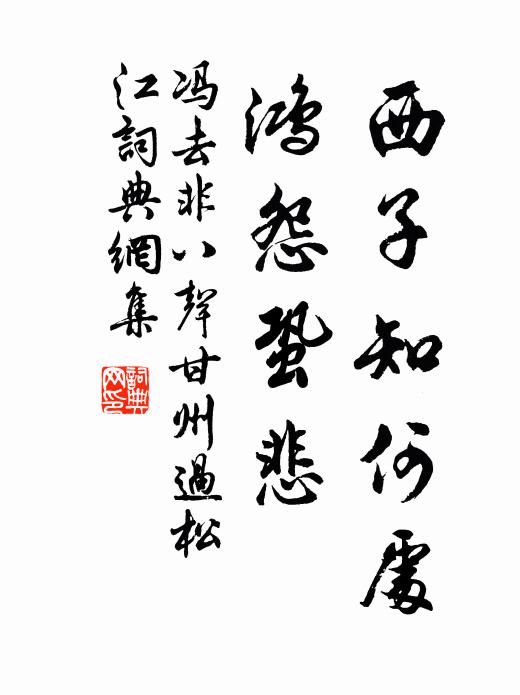 西子知何處
鴻怨蛩悲
馮去非八聲甘州過松
江詞典網集
詞典
网印